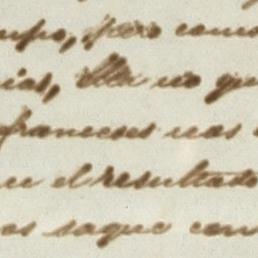 mpo, pero como
ias, Ella no que
franceses nos
en el resultado
os saque con